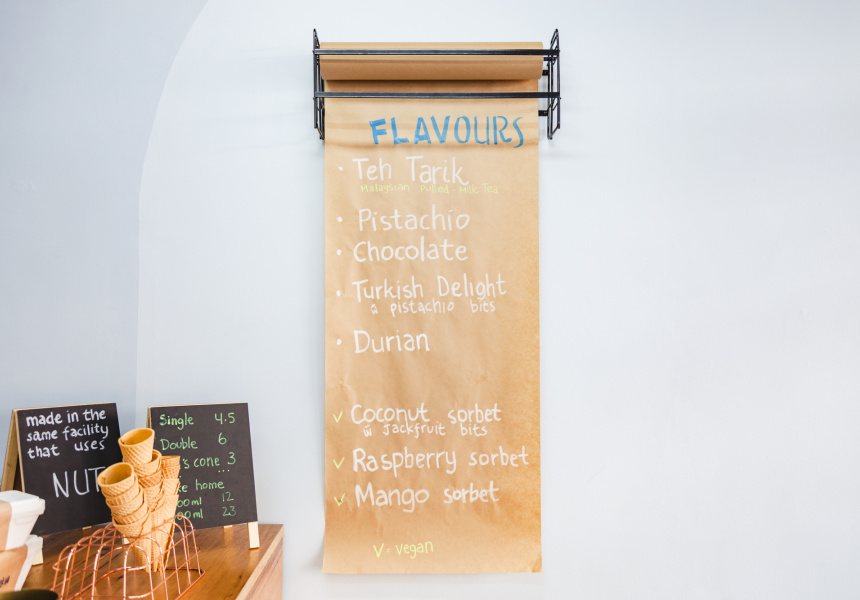 FLAVOURS
• Teh Tarik
Malaysian Pulled Milk Tea
• Pistachio
• Chocolate
• Turkish Delight
& pistachio bits
• Durian
✓ Coconut sorbet
w̄ jackfruit bits
✓ Raspberry sorbet
✓ Mango sorbet
V · vegan
made in the
same facility
that uses
NUT
Single 4.5
Double 6
's cone 3
home
12
23